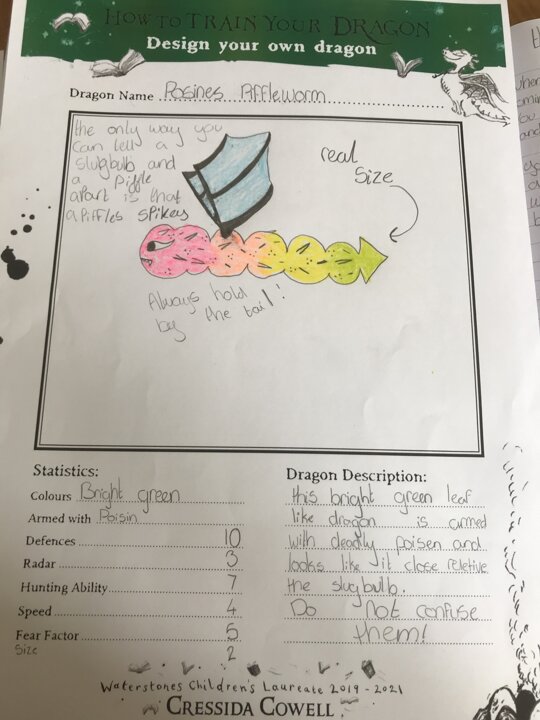 HOW TO TRAIN YOUR DRAGON
Design your own dragon
Dragon Name Posines Piffleworm
the only way you
can tell a
slugbulb and
a piffle
apart is that
a piffles spikey
real
size
Always hold
by the tail!
Statistics:
Colours Bright green
Armed with Poisin
Defences 10
Radar 3
Hunting Ability 7
Speed 4
Fear Factor 5
Size 2
Dragon Description:
this bright green leaf
like dragon is armed
with deadly poisen and
looks like it close reletive
the slugbulb.
Do not confuse
them!
Waterstones Children's Laureate 2019 - 2021
CRESSIDA COWELL